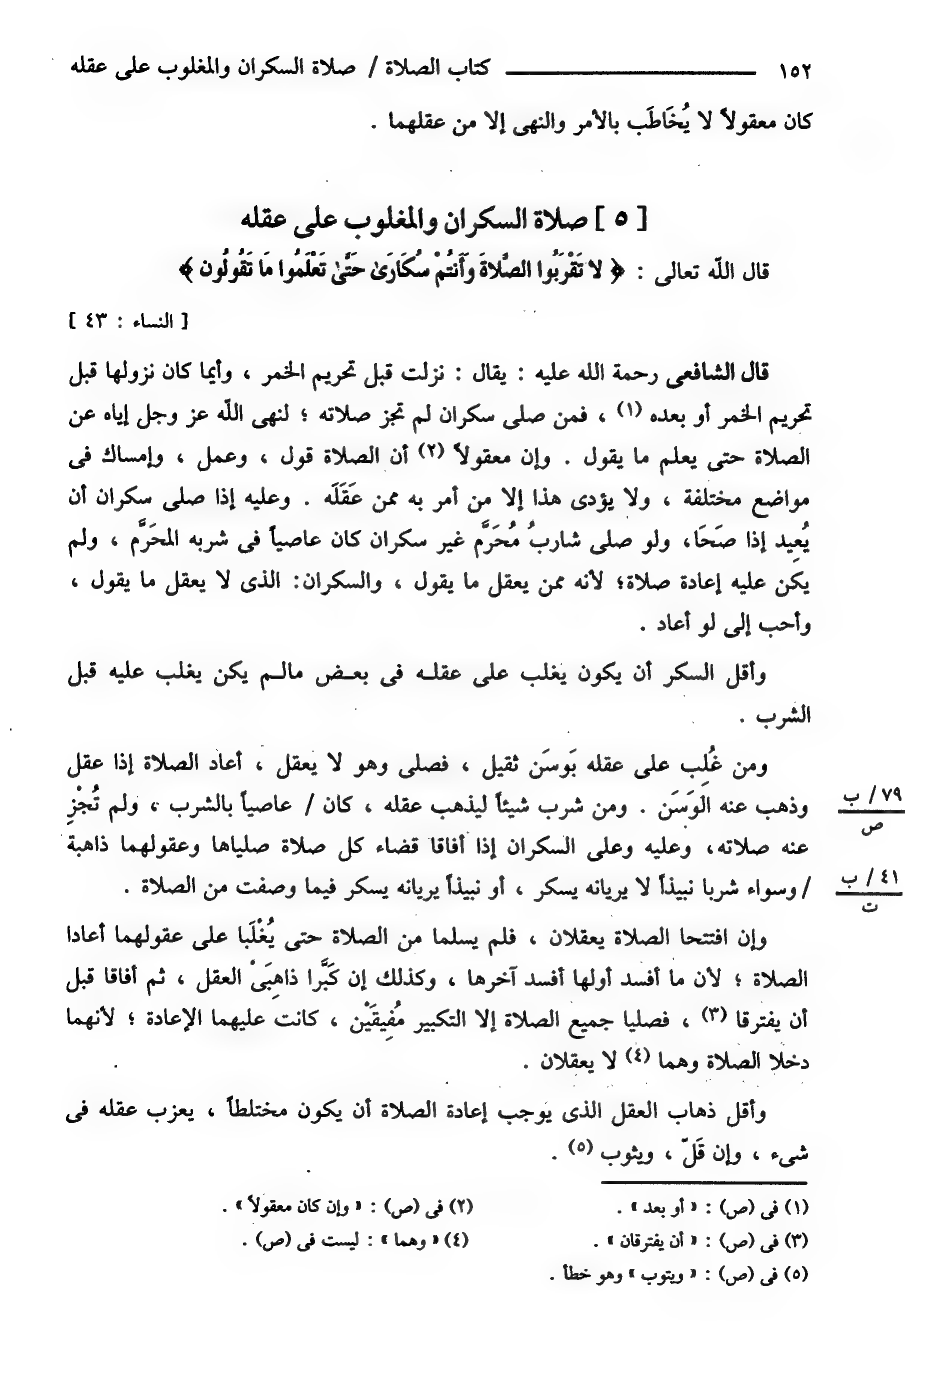 ١٥٢ ـــــــــــــ كتاب الصلاة / صلاة السكران والمغلوب على عقله
كان معقولاً لا يُخَاطَب بالأمر والنهى إلا من عقلهما .
[ ٥ ] صلاة السكران والمغلوب على عقله
قال اللّه تعالى : ﴿ لا تَقْرَبُوا الصَّلاةَ وَأَنتُمْ سُكَارَىٰ حَتَّىٰ تَعْلَمُوا مَا تَقُولُون ﴾
[ النساء : ٤٣ ]
قال الشافعى رحمة الله عليه : يقال : نزلت قبل تحريم الخمر ، وأيما كان نزولها قبل
تحريم الخمر أو بعده (١) ، فمن صلى سكران لم تجز صلاته ؛ لنهى اللّه عز وجل إياه عن
الصلاة حتى يعلم ما يقول . وإن معقولاً (٢) أن الصلاة قول ، وعمل ، وإمساك فى
مواضع مختلفة ، ولا يؤدى هذا إلا من أمر به ممن عَقَلَه . وعليه إذا صلى سكران أن
يُعِيد إذا صَحَا، ولو صلى شاربُ مُحَرَّم غير سكران كان عاصياً فى شربه المحَرَّم ، ولم
يكن عليه إعادة صلاة؛ لأنه ممن يعقل ما يقول ، والسكران: الذى لا يعقل ما يقول ،
وأحب إلى لو أعاد .
وأقل السكر أن يكون يغلب على عقلـه فى بعـض مالـم يكن يغلب عليه قبل
الشرب .
ومن غُلِب على عقله بَوسَن ثقيل ، فصلى وهو لا يعقل ، أعاد الصلاة إذا عقل
وذهب عنه الوَسَن . ومن شرب شيئاً ليذهب عقله ، كان / عاصياً بالشرب ، ولم تُجْزِ
٧٩/ ب
ص
عنه صلاته، وعليه وعلى السكران إذا أفاقا قضاء كل صلاة صلياها وعقولهما ذاهبة
/ وسواء شربا نبيذاً لا يريانه يسكر ، أو نبيذاً يريانه يسكر فيما وصفت من الصلاة .
٤١/ ب
ت
وإن افتتحا الصلاة يعقلان ، فلم يسلما من الصلاة حتى يُغْلَبا على عقولهما أعادا
الصلاة ؛ لأن ما أفسد أولها أفسد آخرها ، وكذلك إن كَبَّرا ذاهِبَىْ العقل ، ثم أفاقا قبل
أن يفترقا (٣) ، فصليا جميع الصلاة إلا التكبير مُفِيقَيْن ، كانت عليهما الإعادة ؛ لأنهما
دخلا الصلاة وهما (٤) لا يعقلان .
وأقل ذهاب العقل الذى يوجب إعادة الصلاة أن يكون مختلطاً ، يعزب عقله فى
شىء ، وإن قَلّ ، ويثوب (٥) .
(١) فى (ص) : « أو بعد » . (٢) فى (ص) : « وإن كان معقولاً » .
(٣) فى (ص) : « أن يفترقان » . (٤) « وهما » : ليست فى (ص) .
(٥) فى (ص) : « ويتوب » وهو خطأ .